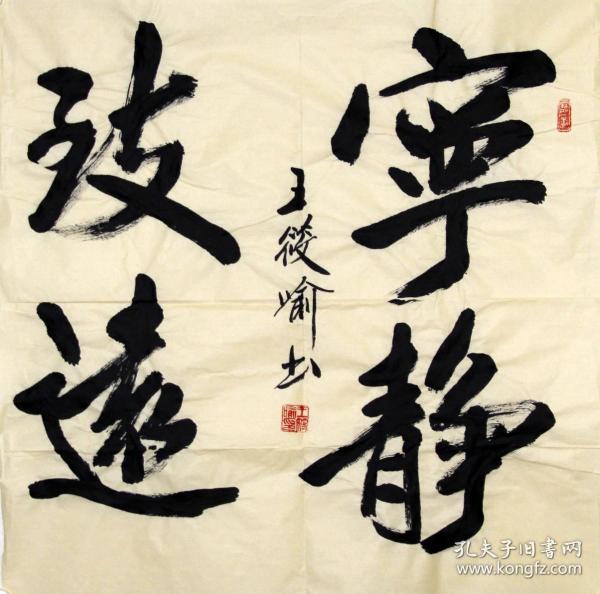 寧静
致遠
王筱喻书
孔夫子旧书网
www.kongfz.com